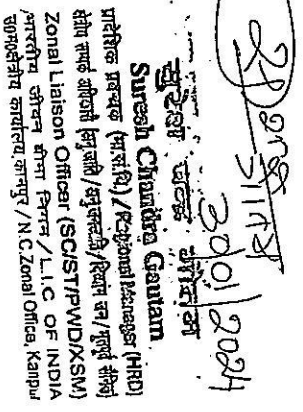 30/01/2024
सुरेश चन्द्र गौतम
Suresh Chandra Gautam
प्रादेशिक प्रबन्धक (मा सं वि) / Regional Manager (HRD)
क्षेत्रीय सम्पर्क अधिकारी (अनु जाति / अनु जनजाति / दिव्यांग जन / भूतपूर्व सैनिक)
Zonal Liaison Officer (SC/ST/PWD/XSM)
भारतीय जीवन बीमा निगम / L.I.C OF INDIA
उ०म०क्षेत्रीय कार्यालय, कानपुर / N.C.Zonal Office, Kanpur